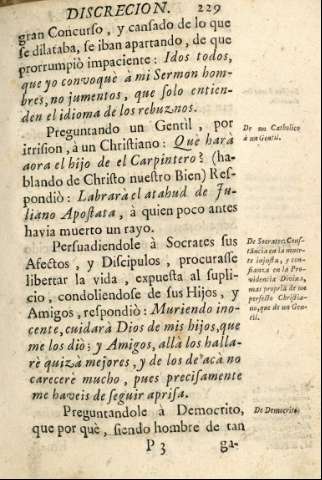 DISCRECION. 229
gran Concurso, y cansado de lo que
se dilataba, se iban apartando, de que
prorrumpiò impaciente: Idos todos,
que yo convoquè à mi Sermon hom-
bres, no jumentos, que solo entien-
den el idioma de los rebuznos.
Preguntando un Gentìl, por
irrision, à un Christiano: Què harà
aora el hijo de el Carpintero? (ha-
blando de Christo nuestro Bien) Res-
pondiò: Labrarà el atahud de Ju-
liano Apostata, à quien poco antes
havia muerto un rayo.
Persuadiendole à Socrates sus
Afectos, y Discipulos, procurasse
libertar la vida, expuesta al supli-
cio, condoliendose de sus Hijos, y
Amigos, respondiò: Muriendo ino-
cente, cuidarà Dios de mis hijos, que
me los diò; y Amigos, allà los halla-
rè quizà mejores, y de los de acà no
carecerè mucho, pues precisamente
me haveis de seguir aprisa.
Preguntandole à Democrito,
que por què, siendo hombre de tan
P 3 ga-
De un Catholico
à un Gentil.
De Socrates: Cons-
tancia en la muer-
te injusta, y con-
fianza en la Pro-
videncia Divina,
mas propria de un
perfecto Christia-
no, que de un Gen-
til.
De Democrito.